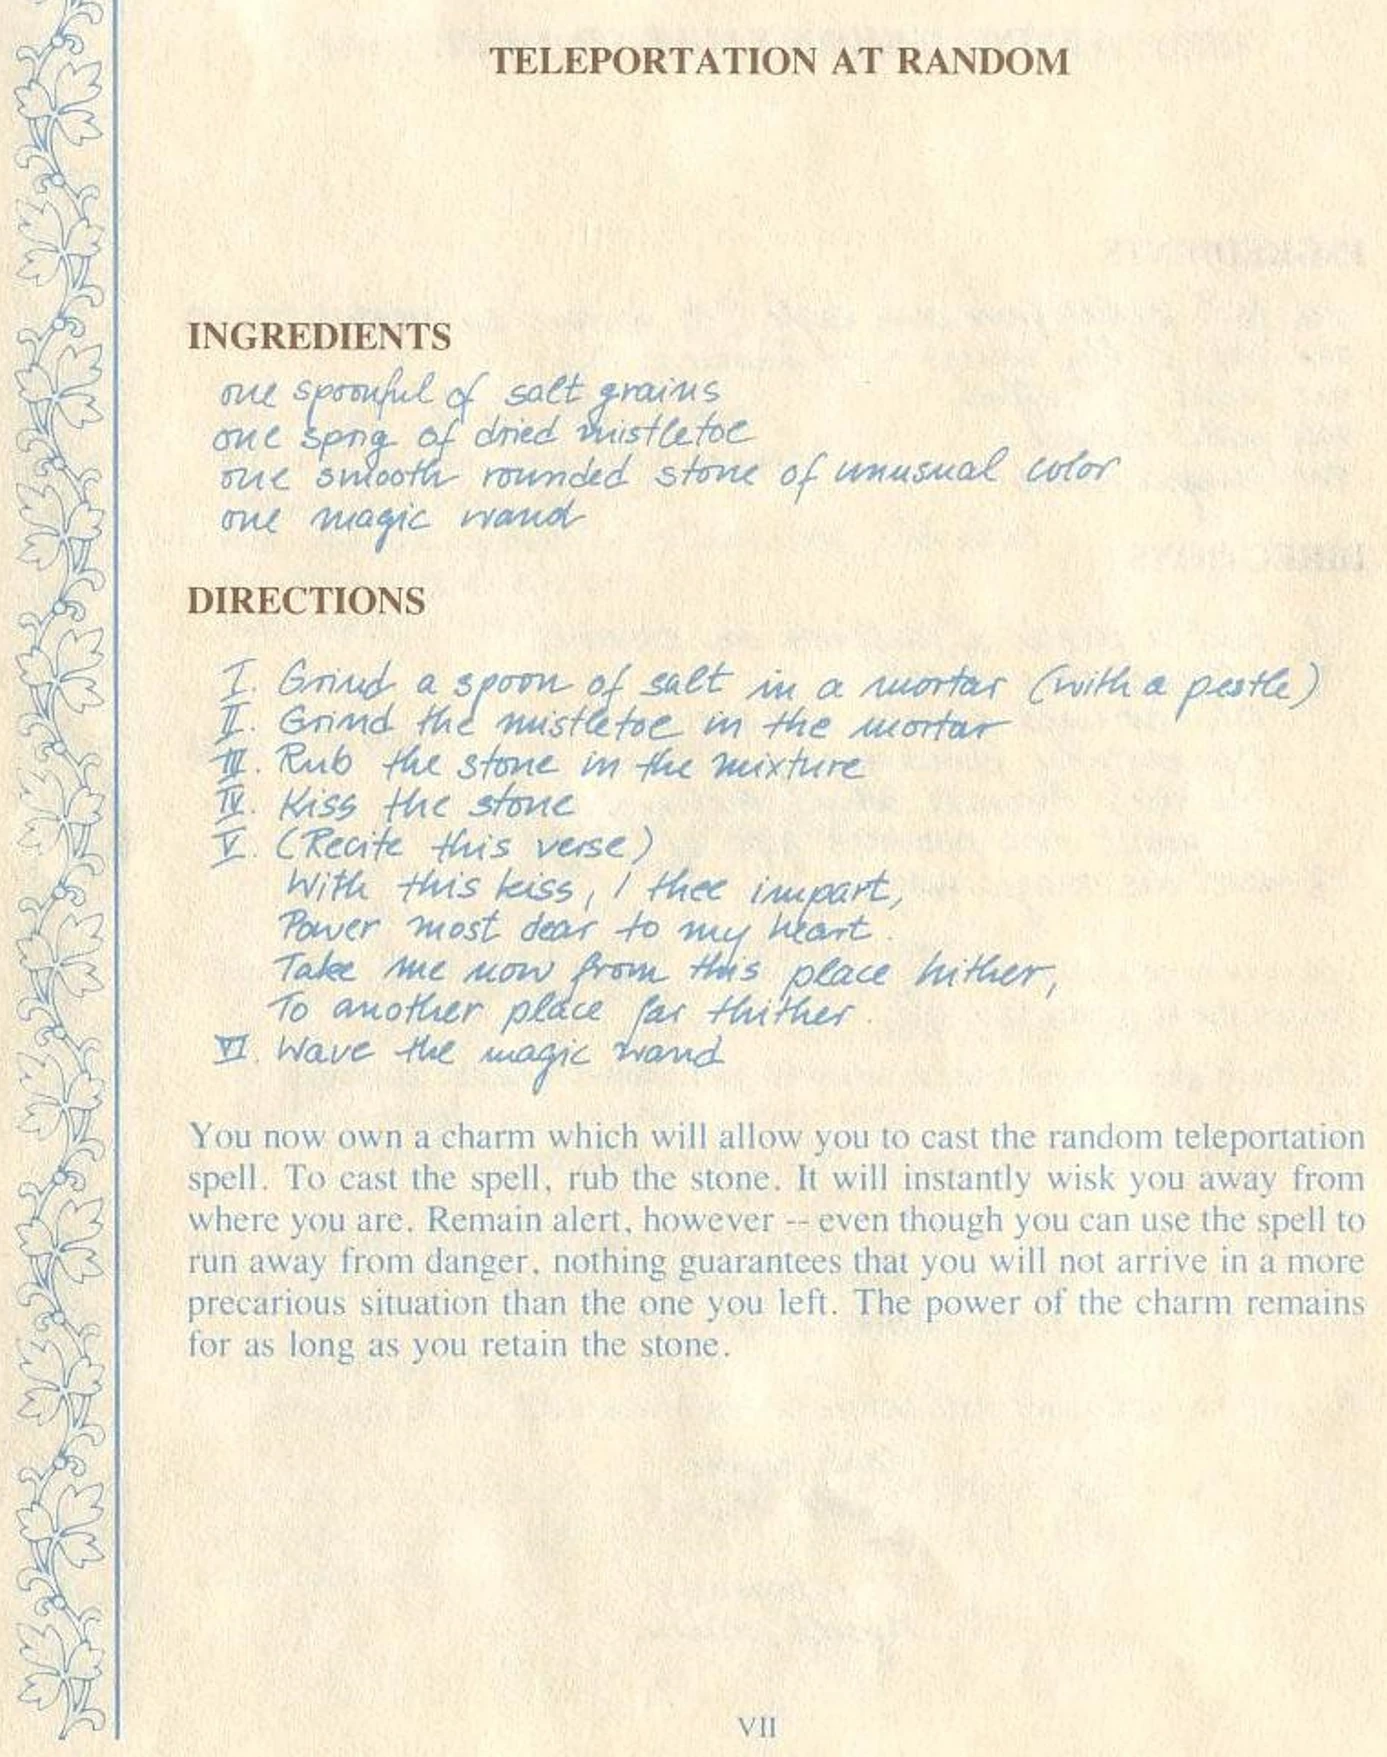 TELEPORTATION AT RANDOM
INGREDIENTS
one spoonful of salt grains
one sprig of dried mistletoe
one smooth rounded stone of unusual color
one magic wand
DIRECTIONS
I. Grind a spoon of salt in a mortar (with a pestle)
II. Grind the mistletoe in the mortar
III. Rub the stone in the mixture
IV. Kiss the stone
V. (Recite this verse)
With this kiss, I thee impart,
Power most dear to my heart.
Take me now from this place hither,
To another place far thither.
VI. Wave the magic wand
You now own a charm which will allow you to cast the random teleportation
spell. To cast the spell, rub the stone. It will instantly wisk you away from
where you are. Remain alert, however -- even though you can use the spell to
run away from danger, nothing guarantees that you will not arrive in a more
precarious situation than the one you left. The power of the charm remains
for as long as you retain the stone.
VII